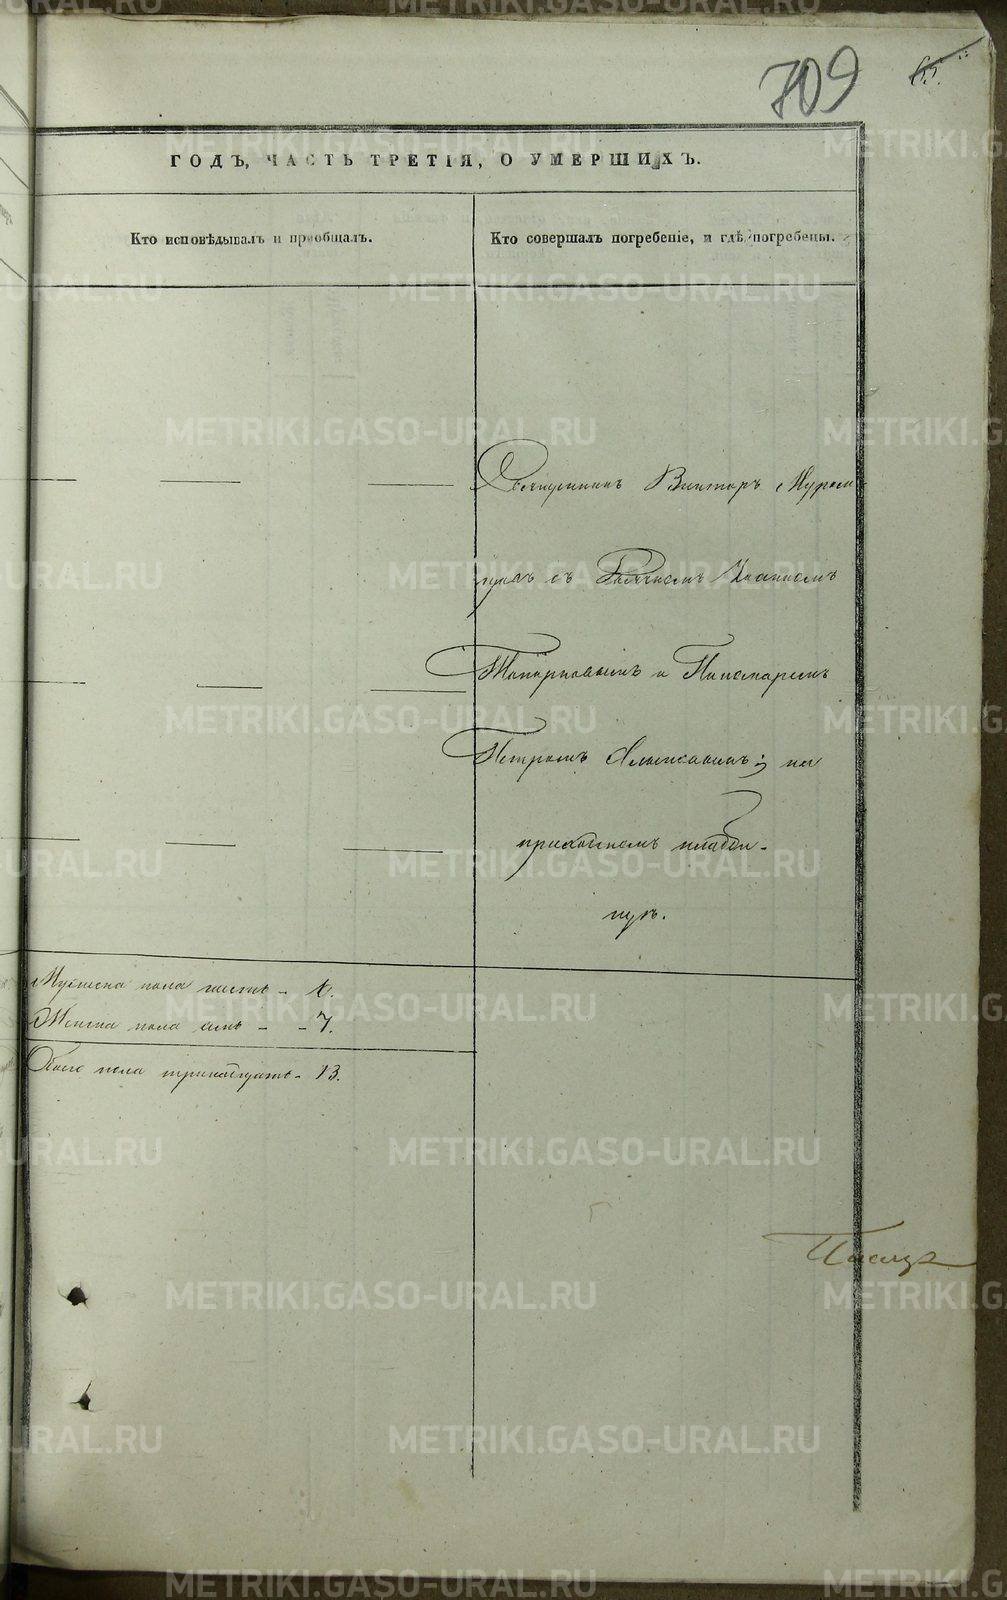 709
65.
ГОДЪ, ЧАСТЬ ТРЕТІЯ, О УМЕРШИХЪ.
Кто исповѣдывалъ и пріобщалъ.
Кто совершалъ погребеніе, и гдѣ погребены.
Священникъ Викторъ
съ Іоанномъ
и Пономаремъ
Петромъ на
приходскомъ кладби-
щѣ.
Мужеска пола шесть - 6.
Женска пола семь - - 7.
Обоего пола тринадцать - 13.
METRIKI.GASO-URAL.RU